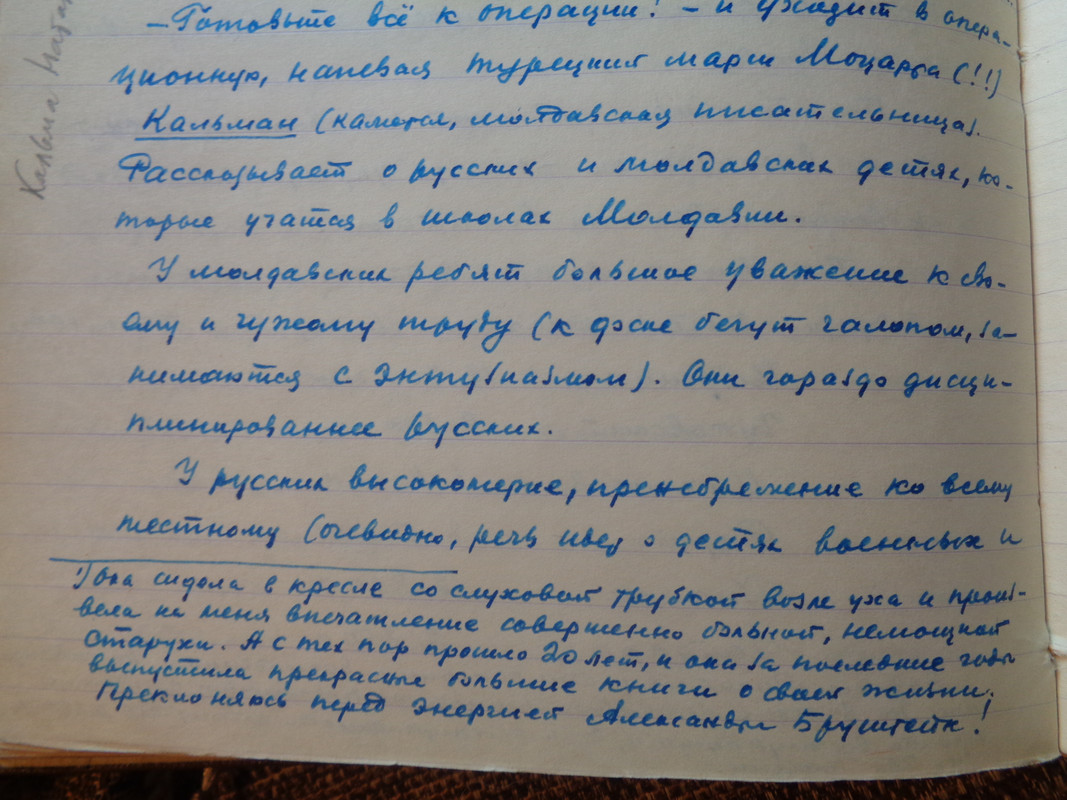 — Готовьте всё к операции! — и уходит в опера-
ционную, напевая турецкий марш Моцарта (!!)
Кальман (кажется, молдавская писательница).
Рассказывает о русских и молдавских детях, ко-
торые учатся в школах Молдавии.
У молдавских ребят большое уважение к сво-
ему и чужому труду (к доске бегут галопом, за-
нимаются с энтузиазмом). Они гораздо дисци-
плинированнее русских.
У русских высокомерие, пренебрежение ко всему
местному (очевидно, речь идёт о детях военных и
1) Она сидела в кресле со слуховой трубкой возле уха и произ-
вела на меня впечатление совершенно больной, немощной
старухи. А с тех пор прошло 20 лет, и она за последние годы
выпустила прекрасные большие книги о своей жизни.
Преклоняюсь перед энергией Александры Бруштейн!
Кальма